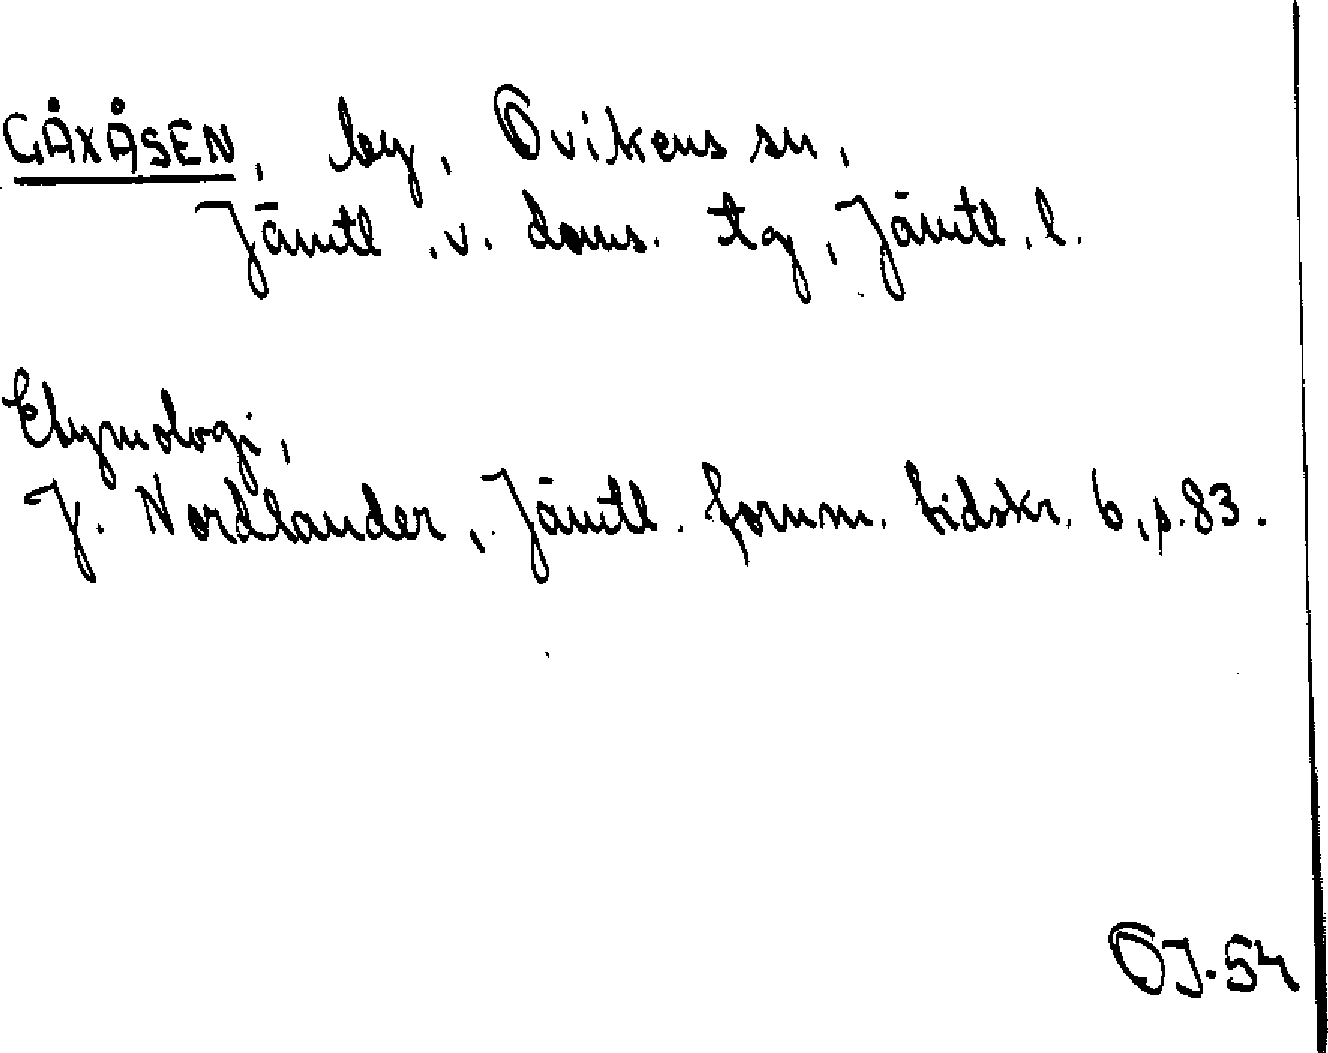 GÅXÅSEN, by, Ovikens sn,
Jämtl. v. doms. tg, Jämtl. l.
Etymologi,
J. Nordlander, Jämtl. fornm. tidskr. 6, p. 83.
OJ. 54